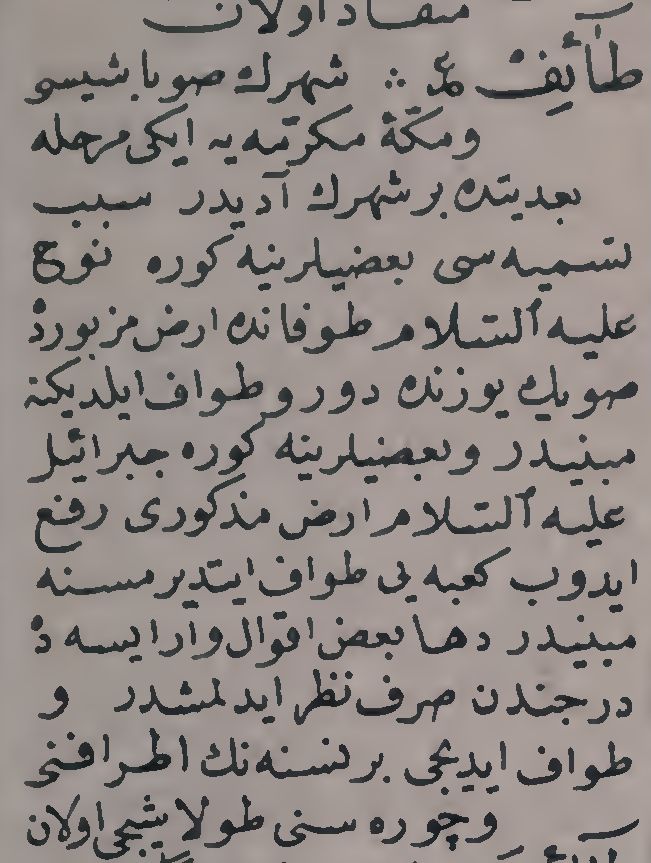 منقاد اولان
طائف ؏ ∴ شهرك صوباشيسى
ومكّهٔ مكرّمه يه ايكى مرحله
بعديتده بر شهرك آديدر سبب
تسميه سى بعضيلرينه كوره نوح
عليه السّلام طوفانده ارض مزبوره
صويك يوزنده دور و طواف ايلديكنه
مبنيدر وبعضيلرينه كوره جبرائيل
عليه السّلام ارض مذكورى رفع
ايدوب كعبه يى طواف ايتديرمسنه
مبنيدر دها بعض اقوال وار ايسه ده
درجندن صرف نظر ايدلمشدر و
طواف ايديجى بر نسنه نك اطرافنى
وچوره سنى طولاشيجى اولان